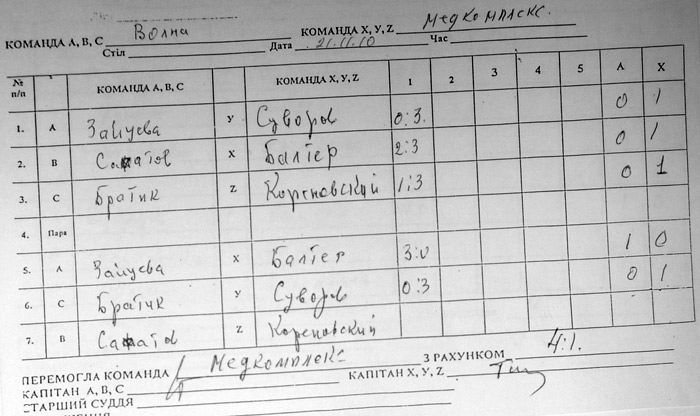 КОМАНДА А, В, С Волна КОМАНДА X, У, Z Медкомплекс.
Стіл Дата 21.11.10 Час
№ п/п КОМАНДА А, В, С КОМАНДА X, У, Z 1 2 3 4 5 А X
1. А Зайцева У Суворов 0:3. 0 1
2. В Сафатов X Балтер 2:3 0 1
3. С Братик Z Кореновский 1:3 0 1
4. Пара
5. А Зайцева X Балтер 3:0 1 0
6. С Братик У Суворов 0:3 0 1
7. В Сафатов Z Кореновский
ПЕРЕМОГЛА КОМАНДА Медкомплекс З РАХУНКОМ 4:1.
КАПІТАН А, В, С КАПІТАН X, У, Z
СТАРШИЙ СУДДЯ